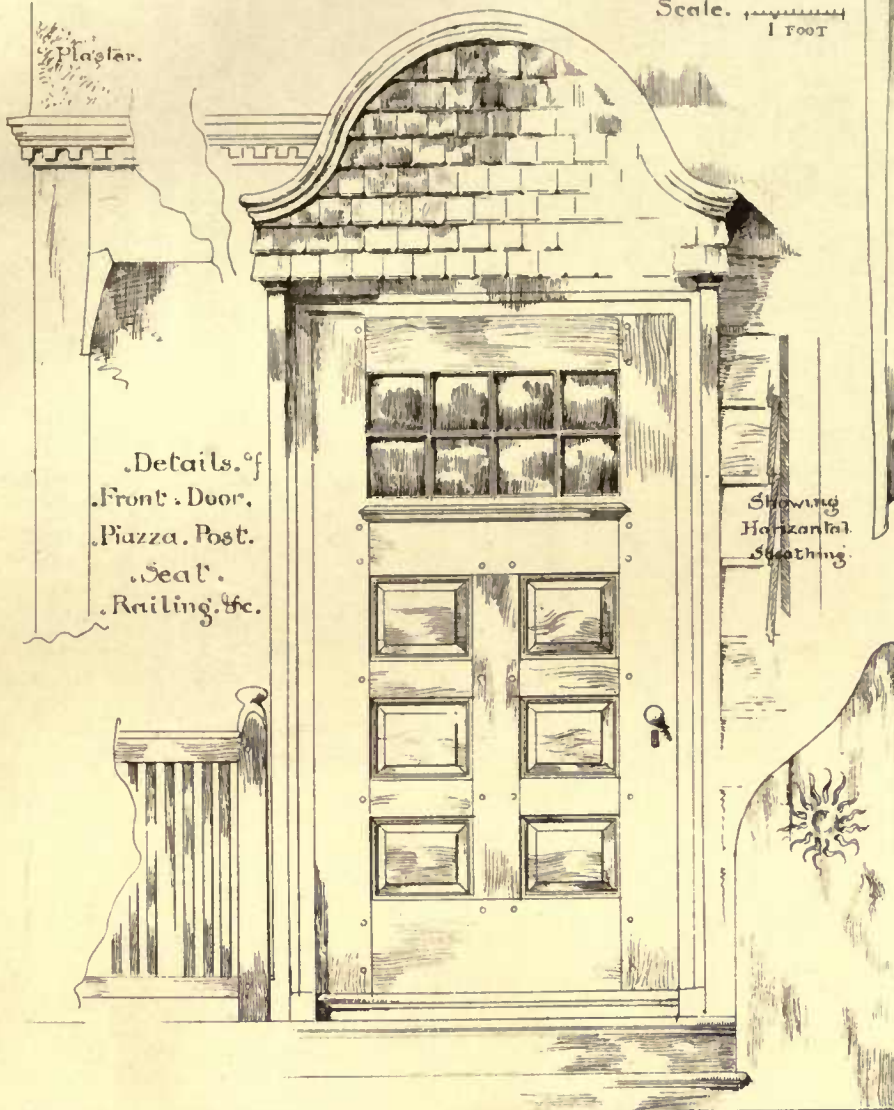 Scale.
1 FOOT
Plaster.
.Details.of
.Front.Door.
.Piazza.Post.
.Seat.
.Railing.&c.
Showing
Horizantal
Sheathing.